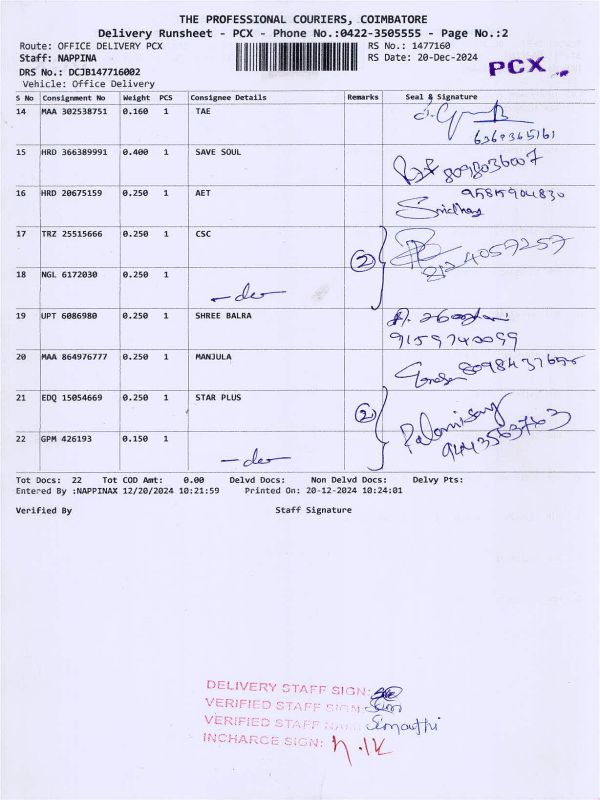 THE PROFESSIONAL COURIERS, COIMBATORE
Delivery Runsheet - PCX - Phone No.:0422-3505555 - Page No.:2
Route: OFFICE DELIVERY PCX RS No.: 1477160
Staff: NAPPINA RS Date: 20-Dec-2024
PCX
DRS No.: DCJB147716002
Vehicle: Office Delivery
S No Consignment No Weight PCS Consignee Details Remarks Seal & Signature
14 MAA 302538751 0.160 1 TAE
6369365161
15 HRD 366389991 0.400 1 SAVE SOUL
8098036007
16 HRD 20675159 0.250 1 AET 9585904830
Sridhar
17 TRZ 25515666 0.250 1 CSC
(2) 8124059257
18 NGL 6172030 0.250 1
-do-
19 UPT 6086980 0.250 1 SHREE BALRA
9159740099
20 MAA 864976777 0.250 1 MANJULA
21 EDQ 15054669 0.250 1 STAR PLUS
(2) Palanisamy
22 GPM 426193 0.150 1
-do-
Tot Docs: 22 Tot COD Amt: 0.00 Delvd Docs: Non Delvd Docs: Delvy Pts:
Entered By :NAPPINAX 12/20/2024 10:21:59 Printed On: 20-12-2024 10:24:01
Verified By Staff Signature
DELIVERY STAFF SIGN:
VERIFIED STAFF SIGN:
VERIFIED STAFF NAME:
INCHARGE SIGN: